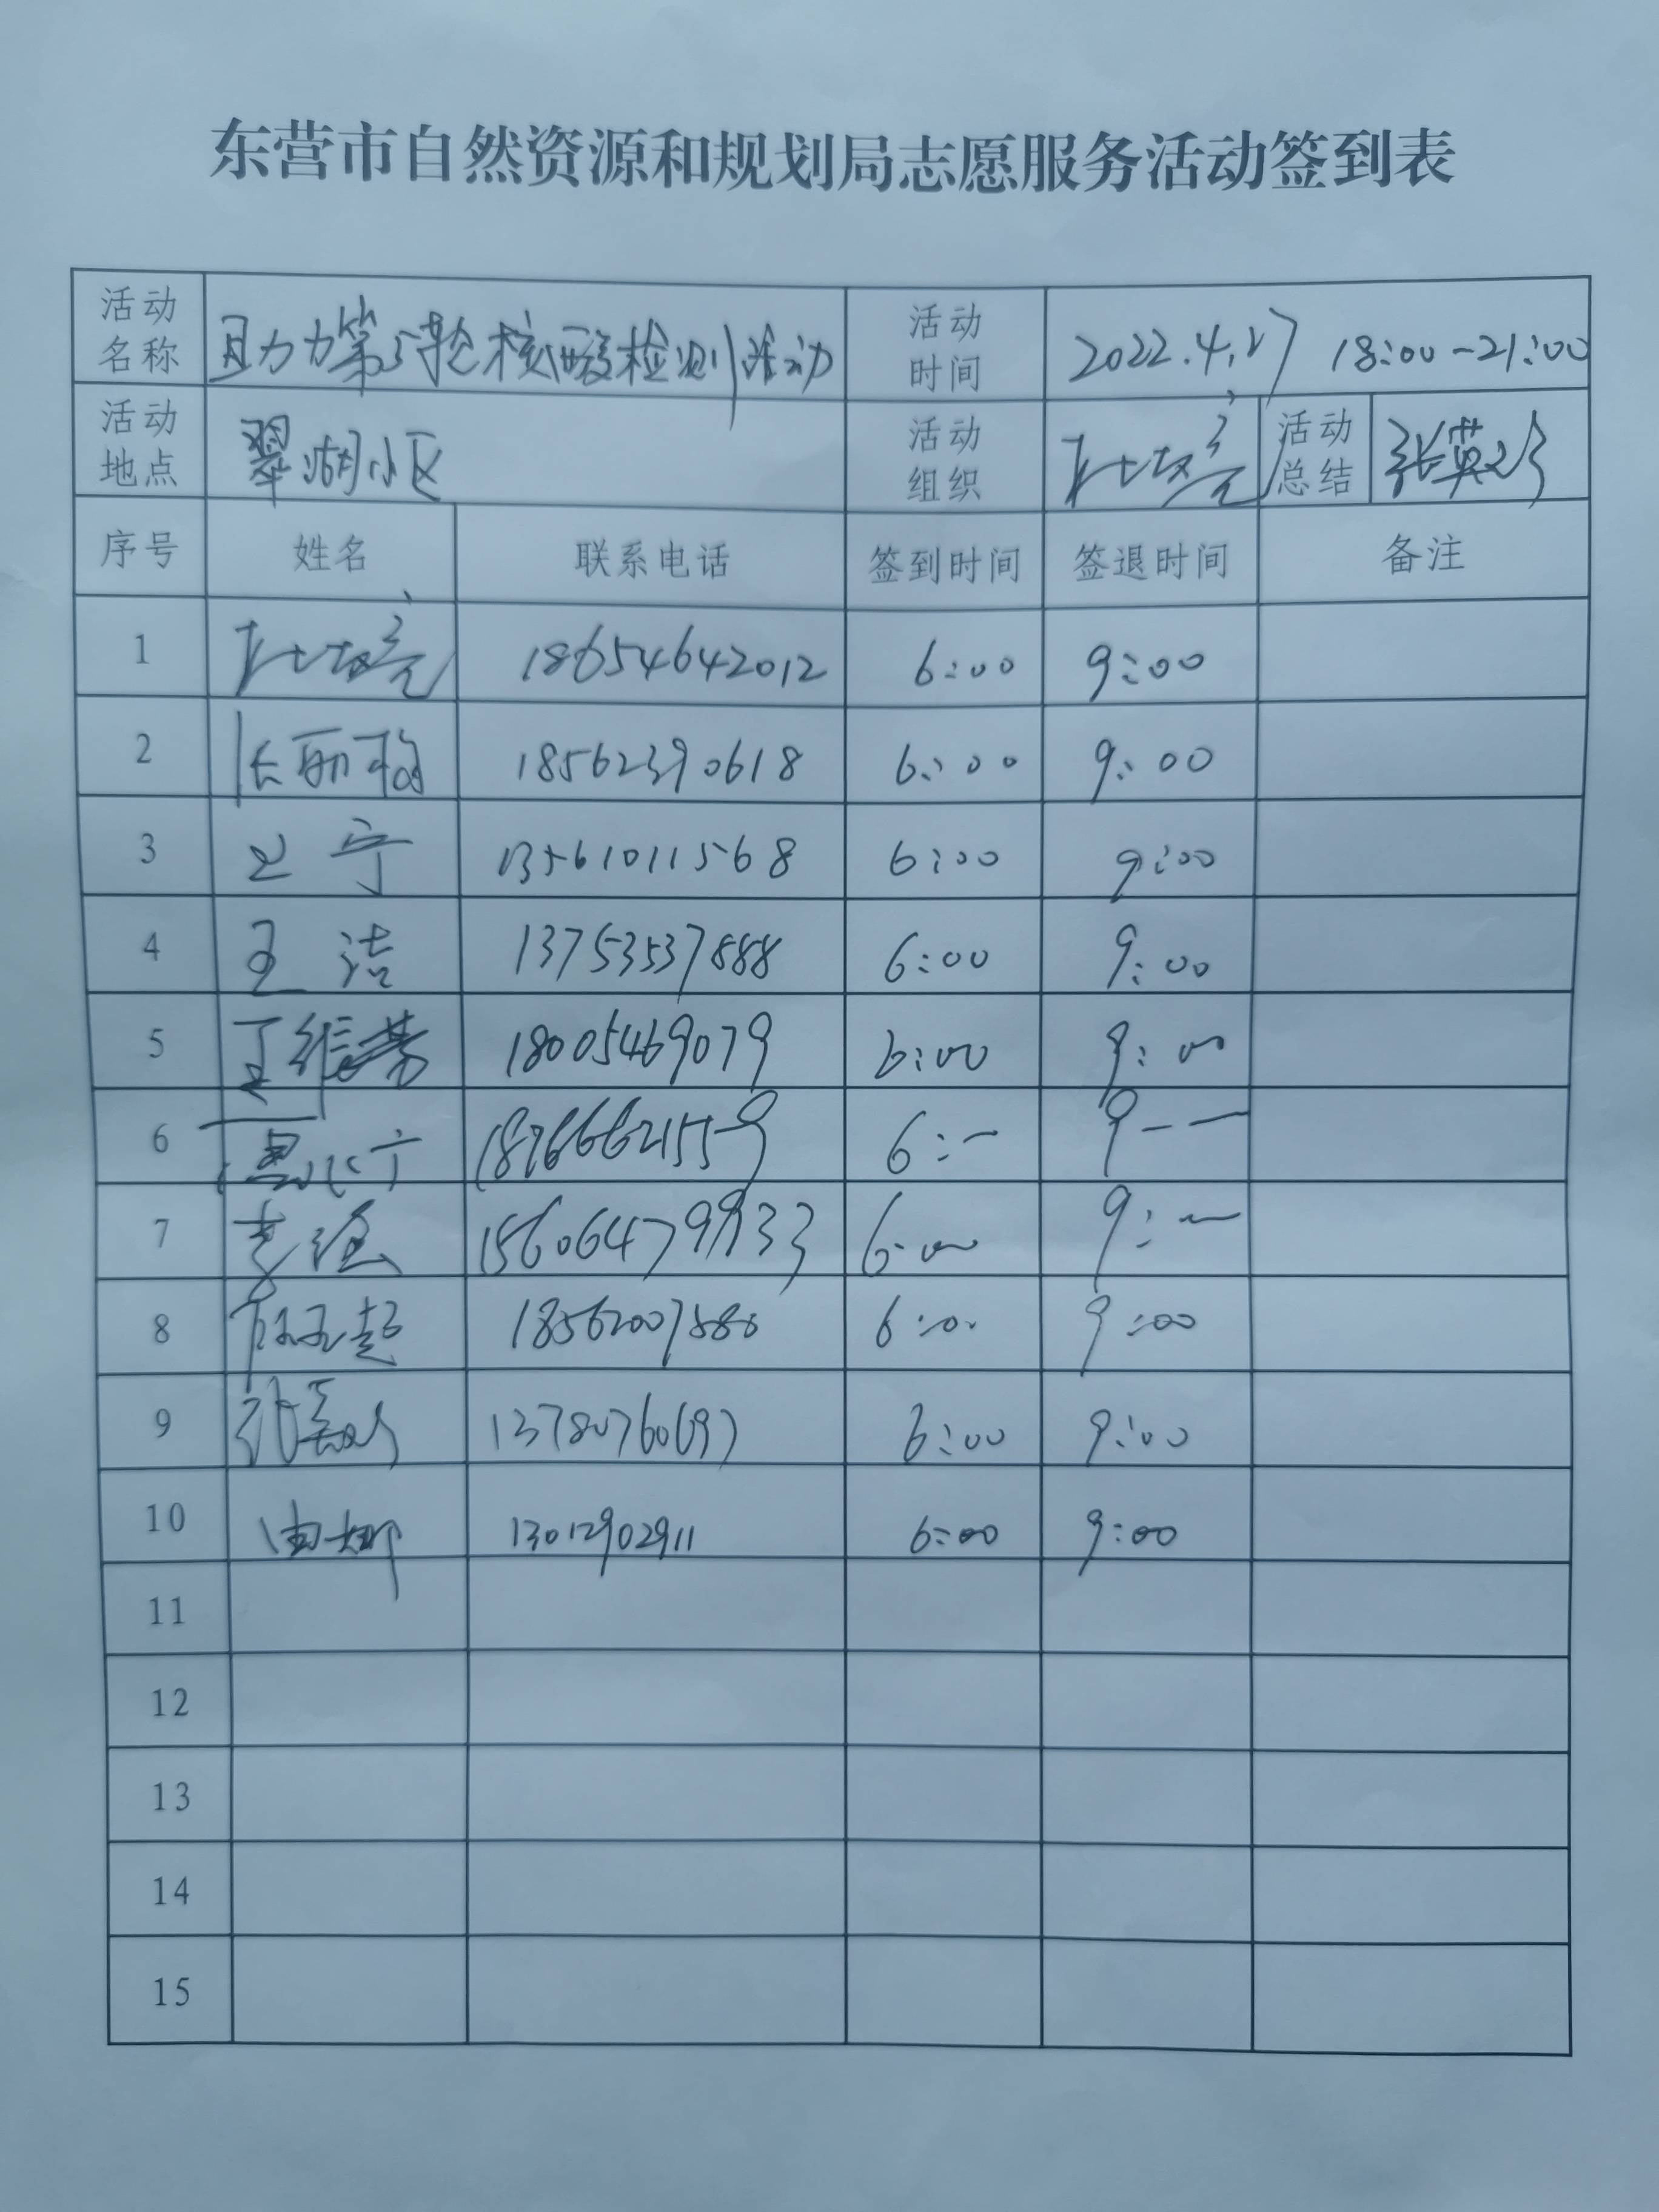 东营市自然资源和规划局志愿服务活动签到表
活动名称 助力第5轮核酸检测活动 活动时间 2022.4.27 18:00-21:00
活动地点 翠湖小区 活动组织 活动总结 张英
序号 姓名 联系电话 签到时间 签退时间 备注
1 18654642012 6:00 9:00
2 张丽 18562390618 6:00 9:00
3 王宁 13561011568 6:00 9:00
4 王洁 13753537888 6:00 9:00
5 王维芳 18005469079 6:00 9:00
6 6:— 9——
7 6:00 9:—
8 超 6:00 9:00
9 张英 6:00 9:00
10 由娜 13012902911 6:00 9:00
11
12
13
14
15